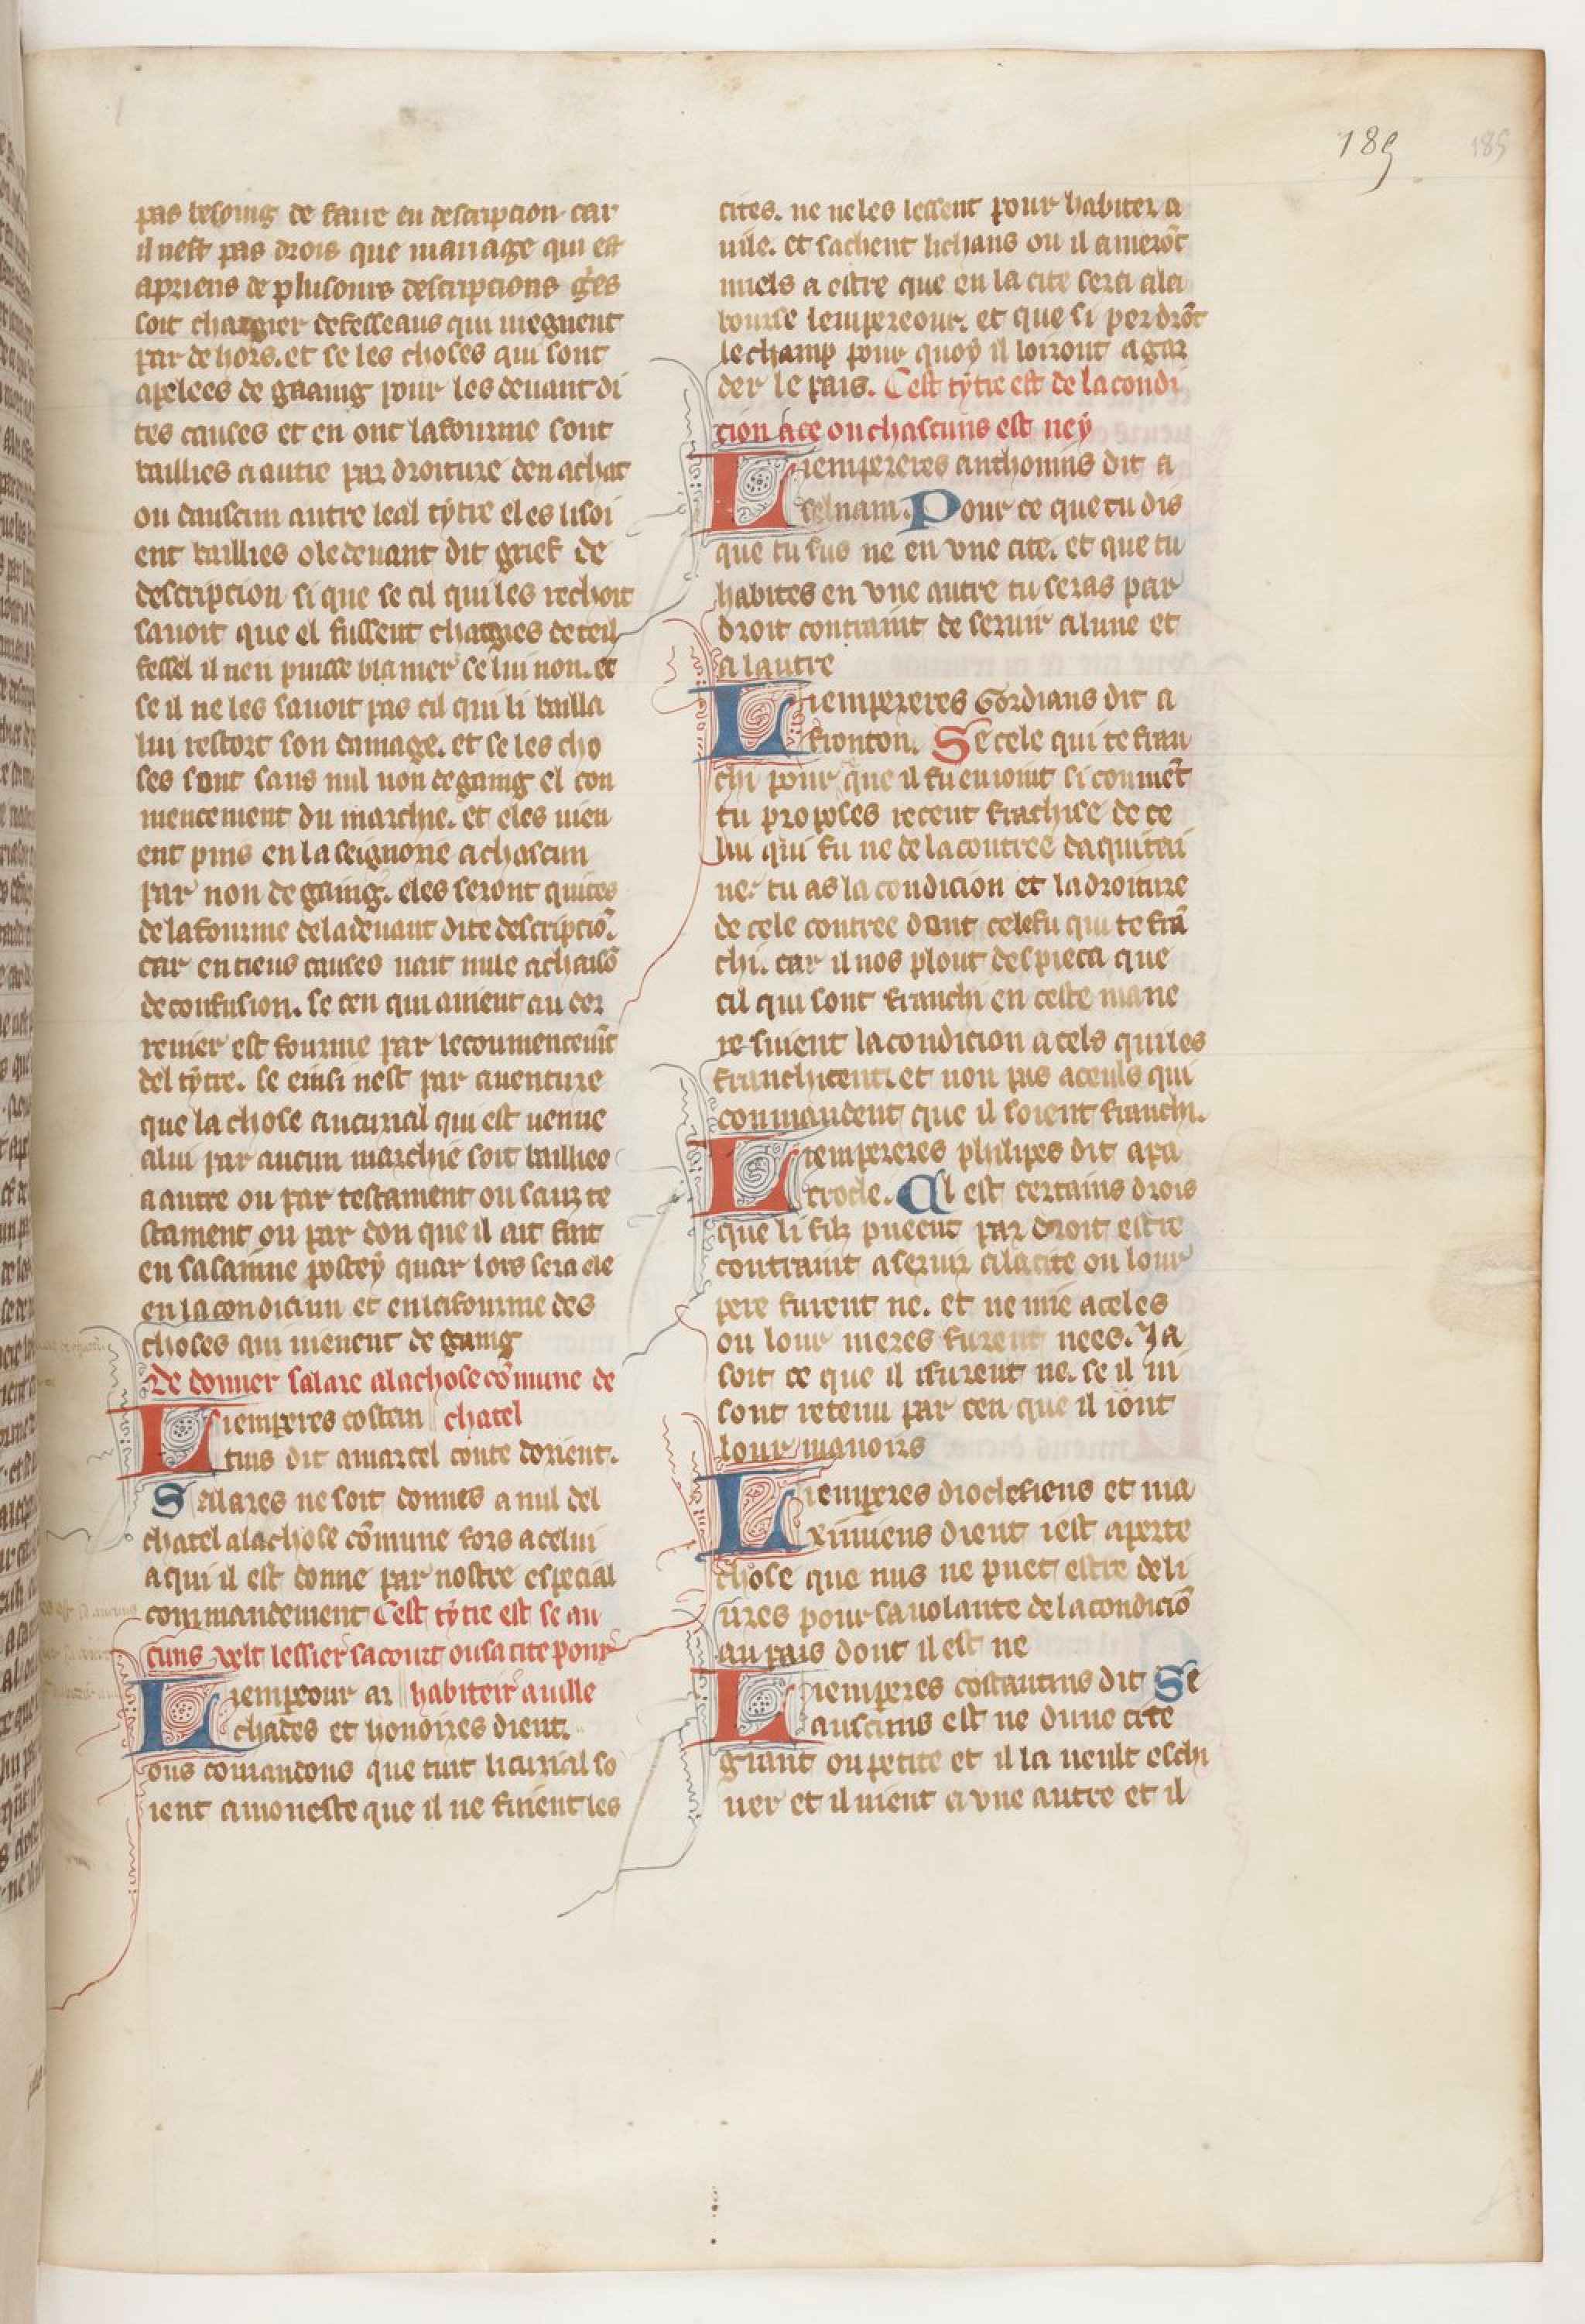 189 185
pas besoing de faire en descripcion car
il nest pas drois que mariage qui est
apriens de plusours descripcions gͤs
soit chargier defesseaus qui viegnent
par de hors. et se les choses qui sont
apelees de gaaing pour les devant di
tes causes et en ont la fourme sont
baillies a autre par droiture den achat
ou daucun autre leal tytre el es lisoi
ent baillies o le devant dit grief de
descripcion si que se cil qui les rechoit
savoit que el fussent chargies de teil
fessel il nen puisse blamer se lui non. et
se il ne les savoit pas cil qui li bailla
lui restort son damage. et se les cho
ses sont sans nul non de gaing el con
mencement du marchie. et eles vien
ent puis en la seignorie a chascun
par non de gaing. eles seront quites
de la fourme de la devant dite descripciō.
car en tieus causes nait nule achaisō
de confusion. se cen qui avient au der
renier est fourme par le coumencemt̄
del tytre. se einsi nest par aventure
que la chose au curial qui est venue
a lui par aucun marchie soit baillee
a autre ou par testament ou sanz te
stament ou par don que il ait fait
en sa saimme postey quar lors sera ele
en la condiciun et en la fourme des
choses qui vienent de gaing
De donner salare a la chose cōmune de
Li emperes costan chatel
tins dit a marcel conte dorient.
Salares ne soit donnes a nul del
chatel a la chose cōmune fors a celui
a qui il est donne par nostre especial
commandement Cest tytre est se au
cuns velt lessier sa court ou sa cite pour
Li empereour ar habiteir a ville
chades et honoires dient.
ous comandons que tuit li curial so
ient amoneste que il ne fuient les
cites. ne ne les lessent pour habiter a
vile. et sachent li chans ou il amerōt
miels a estre que en la cite sera a la
bourse lempereour. et que si perdrōt
le champ pour quoy il loiront a gar
der le pais. Cest tytre est de la condi
cion a ce ou chascuns est ney
Li empereres anthonins dit a
selnam. Pour ce que tu dis
que tu fus ne en vne cite. et que tu
habites en vne autre tu seras par
droit contraint de servir a lune et
a lautre
Li empereres Gordians dit a
fronton. Se cele qui te fran
chi pour que il fu enioint si conmēt
tu proposes recent frachise de ce
lui qui fu ne de la contree daquitai
ne. tu as la condicion et la droiture
de cele contree dont cele fu qui te frā
chi. car il nos plout despieca que
cil qui sont franchi en ceste mane
re suient la condicion a cels qui les
franchicent. et non pas a ceuls qui
conmandent que il soient franchi.
Li empereres philipes dit a pa
trocle. Al est certains drois
que li filz pueent par droit estre
contraint a servir a la cite ou lour
pere furent ne. et ne mie a celes
ou lour meres furent nees. Ja
soit ce que il i furent ne. se il ni
sont retenu par cen que il i ont
lour manoirs
Li emperes dioclesiens et ma
ximiens dient i est aperte
chose que nus ne puet estre deli
ures pour sa volante de la condiciō
au pais dont il est ne
Li emperes costantins dit Se
aucuns est ne dune cite
grant ou petite et il la veult eschi
ver et il vient a vne autre et il